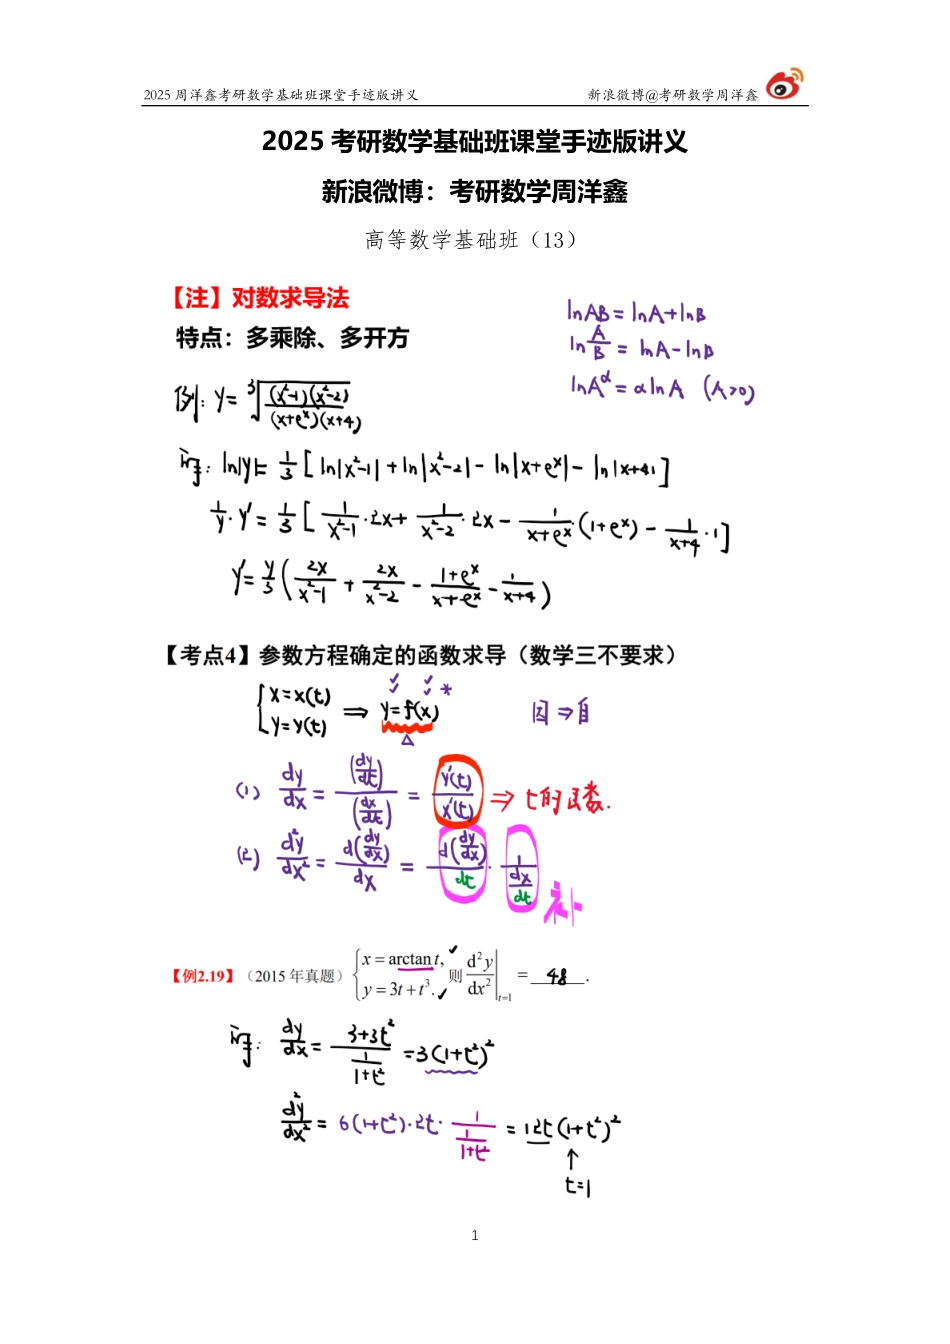 2025 周洋鑫考研数学基础班课堂手迹版讲义 新浪微博@考研数学周洋鑫
2025 考研数学基础班课堂手迹版讲义
新浪微博：考研数学周洋鑫
高等数学基础班（13）
【注】对数求导法
特点：多乘除、多开方
lnAB = lnA+lnB
ln A/B = lnA-lnB
lnA^α = αlnA (A>0)
例: y= ∛((x²-1)(x²-2)/((x+e^x)(x+4)))
解: ln|y|= 1/3 [ln|x²-1|+ln|x²-2|-ln|x+e^x|-ln|x+4|]
1/y·y'= 1/3 [1/(x²-1)·2x+ 1/(x²-2)·2x - 1/(x+e^x)·(1+e^x) - 1/(x+4)·1]
y'= y/3 (2x/(x²-1) + 2x/(x²-2) - (1+e^x)/(x+e^x) - 1/(x+4))
【考点4】参数方程确定的函数求导（数学三不要求）
{x=x(t) y=y(t) ⇒ y=f(x) * △ 因⇒自
(1) dy/dx = (dy/dt)/(dx/dt) = y'(t)/x'(t) ⇒ t的函数.
(2) d²y/dx² = d(dy/dx)/dx = d(dy/dx)/dt · 1/(dx/dt) 补
【例2.19】（2015 年真题）{x = arctan t, y = 3t + t³. 则 d²y/dx²|t=1 = 48 .
解: dy/dx = (3+3t²)/(1/(1+t²)) =3(1+t²)²
d²y/dx² = 6(1+t²)·2t· 1/(1/(1+t²)) = 12t(1+t²)²
↑
t=1
1